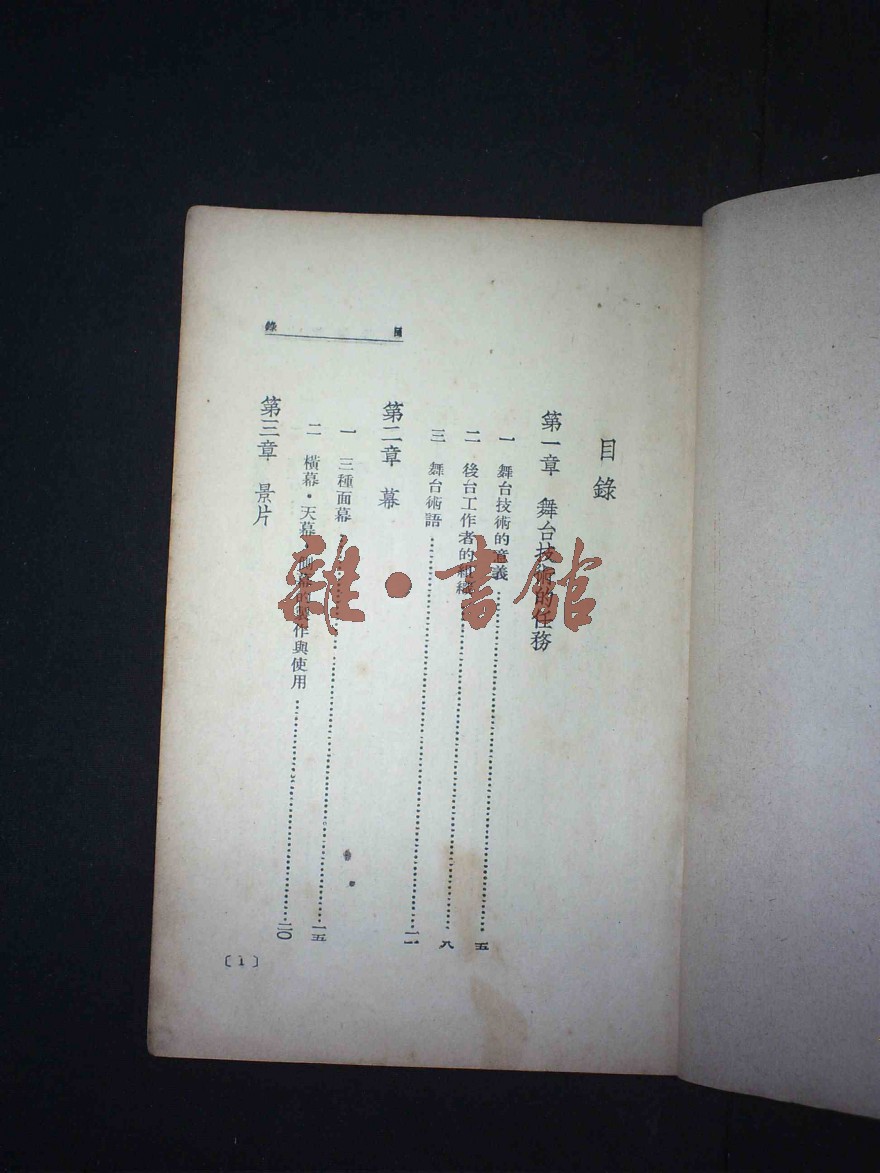 目錄
第一章 舞台技術的任務
一 舞台技術的意義……五
二 後台工作者的組織……八
三 舞台術語……一一
第二章 幕
一 三種面幕……一五
二 橫幕·天幕·側幕的製作與使用……二〇
第三章 景片
目 錄
〔1〕
雜·書館